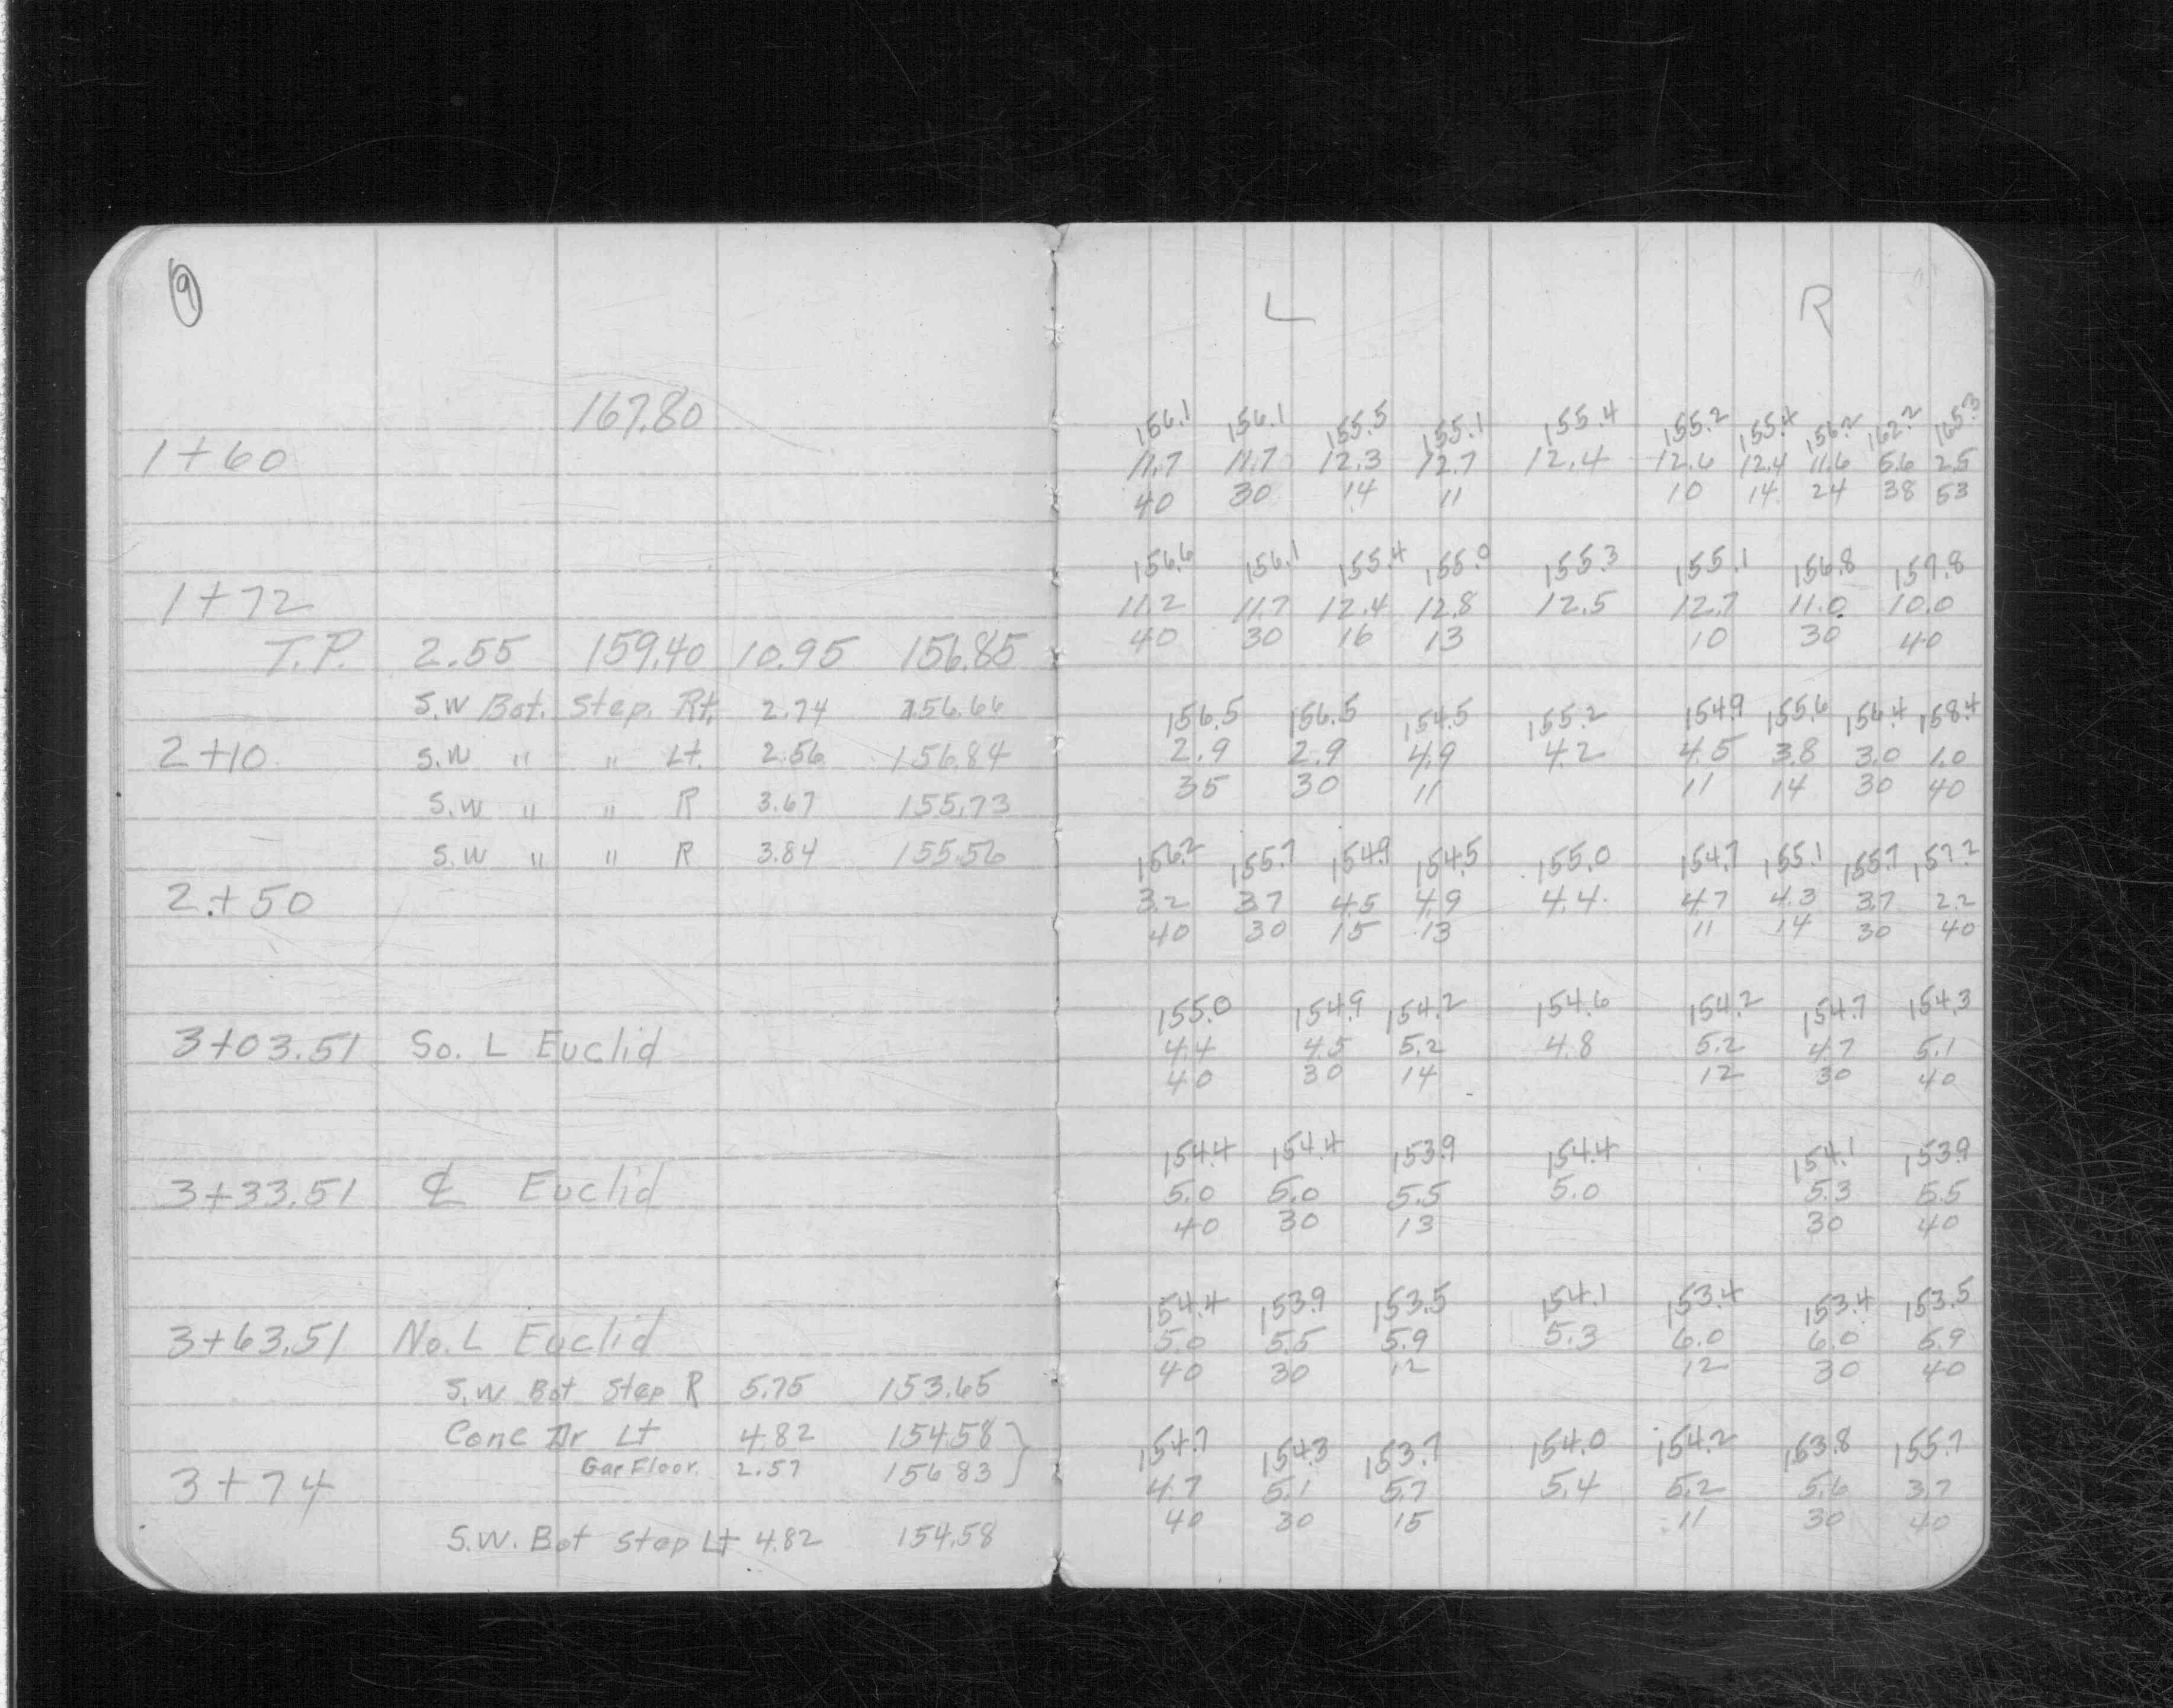 9
L R
167.80
156.1 156.1 155.5 155.1 155.4 155.2 155.4 156.2 162.2 165.3
1+60 11.7 11.7 12.3 12.7 12.4 12.6 12.4 11.6 5.6 2.5
40 30 14 11 10 14 24 38 53
156.6 156.1 155.4 155.0 155.3 155.1 156.8 157.8
1+72 11.2 11.7 12.4 12.8 12.5 12.7 11.0 10.0
T.P. 2.55 159.40 10.95 156.85 40 30 16 13 10 30 40
S.W Bot. Step. Rt. 2.74 156.66 156.5 156.5 154.5 155.2 154.9 155.6 156.4 158.4
2+10 S.W " " Lt. 2.56 156.84 2.9 2.9 4.9 4.2 4.5 3.8 3.0 1.0
S.W " " R 3.67 155.73 35 30 11 11 14 30 40
S.W " " R 3.84 155.56 156.2 155.7 154.9 154.5 155.0 154.7 155.1 155.7 157.2
2+50 3.2 3.7 4.5 4.9 4.4 4.7 4.3 3.7 2.2
40 30 15 13 11 14 30 40
155.0 154.9 154.2 154.6 154.2 154.7 154.3
3+03.51 So. L Euclid 4.4 4.5 5.2 4.8 5.2 4.7 5.1
40 30 14 12 30 40
154.4 154.4 153.9 154.4 154.1 153.9
3+33.51 ℄ Euclid 5.0 5.0 5.5 5.0 5.3 5.5
40 30 13 30 40
154.4 153.9 153.5 154.1 153.4 153.4 153.5
3+63.51 No. L Euclid 5.0 5.5 5.9 5.3 6.0 6.0 5.9
S.W Bot Step R 5.75 153.65 40 30 12 12 30 40
Conc Dr Lt 4.82 154.58 154.7 154.3 153.7 154.0 154.2 153.8 155.7
Gar Floor. 2.57 156.83
3+74 4.7 5.1 5.7 5.4 5.2 5.6 3.7
40 30 15 11 30 40
S.W. Bot Step Lt 4.82 154.58